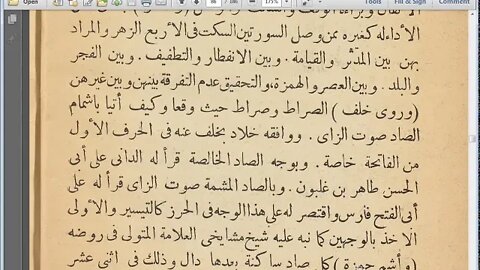 86
175%
Tools
Fill & Sign
Comment
الأداء له كغيره ممن وصل السورتين السكت فى الأربع الزهر والمراد
بهن بين المدثر والقيامة . وبين الانفطار والتطفيف . وبين الفجر
والبلد . وبين العصر والهمزة، والتحقيق عدم التفرقة بينهن وبين غيرهن
(وروى خلف) الصراط وصراط حيث وقعا وكيف أتيا باشمام
الصاد صوت الزاى . ووافقه خلاد بخلف عنه فى الحرف الأول
من الفاتحة خاصة . وبوجه الصاد الخالصة قرأ له الدانى على أبى
الحسن طاهر بن غلبون . وبالصاد المشمة صوت الزاى قرأ له على
أبى الفتح فارس واقتصر له على هذا الوجه فى الحرز كالتيسير والأولى
الأخذ بالوجهين كما نبه عليه شيخ مشايخى العلامة المتولى فى روضه
(وأشم حمزة) كل صاد ساكنة بعدها دال وذلك فى اثنى عشر